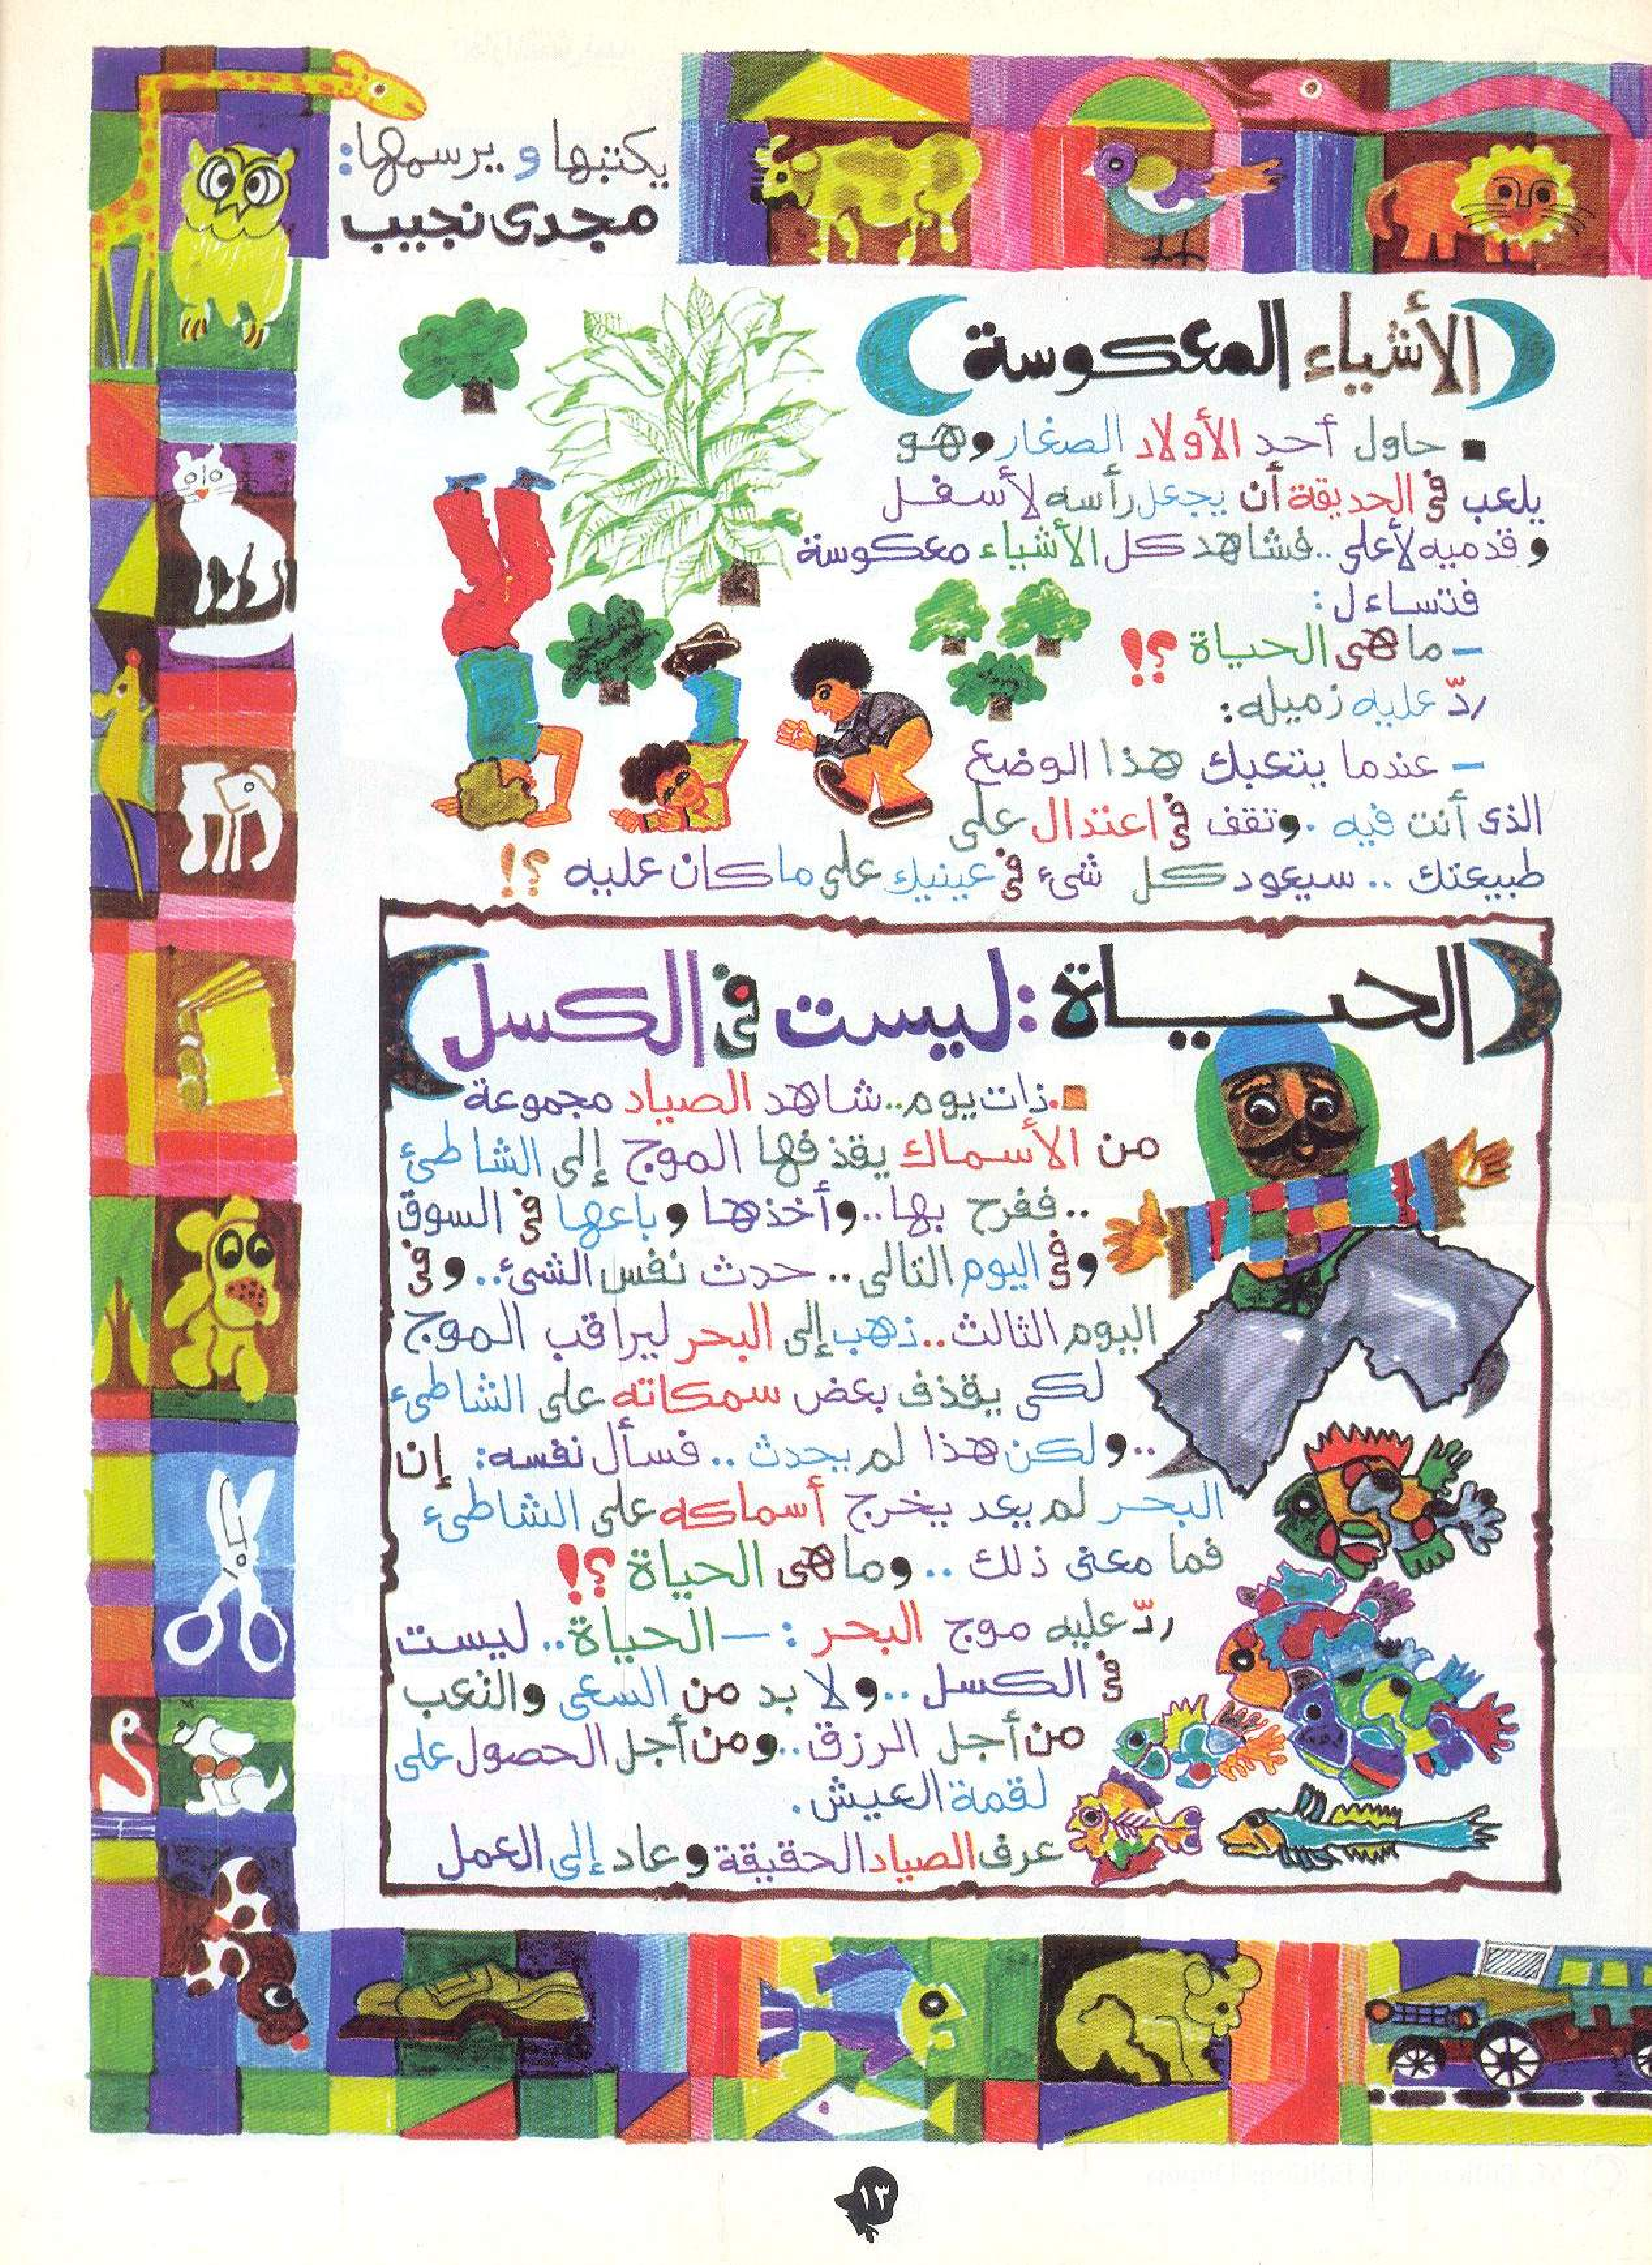 يكتبها و يرسمها:
مجدى نجيب
الأشياء المعكوسة
حاول أحد الأولاد الصغار وهو
يلعب فى الحديقة أن يجعل رأسه لأسفل
و قدميه لأعلى .. فشاهد كل الأشياء معكوسة
فتساءل :
- ما هى الحياة ؟!
ردّ عليه زميله:
- عندما يتعبك هذا الوضع
الذى أنت فيه . وتقف فى اعتدال على
طبيعتك .. سيعود كل شئ فى عينيك على ما كان عليه ؟!
الحياة : ليست فى الكسل
ذات يوم .. شاهد الصياد مجموعة
من الأسماك يقذفها الموج إلى الشاطئ
.. ففرح بها .. وأخذها وباعها فى السوق
وفى اليوم التالى .. حدث نفس الشئ .. وفى
اليوم الثالث .. ذهب إلى البحر ليراقب الموج
لكى يقذف بعض سمكاته على الشاطىء
.. ولكن هذا لم يحدث .. فسأل نفسه: إن
البحر لم يعد يخرج أسماكه على الشاطىء
فما معنى ذلك .. وما هى الحياة ؟!
ردّ عليه موج البحر : - الحياة .. ليست
فى الكسل .. ولا بد من السعى والتعب
من أجل الرزق .. ومن أجل الحصول على
لقمة العيش .
عرف الصياد الحقيقة وعاد إلى العمل
١٣